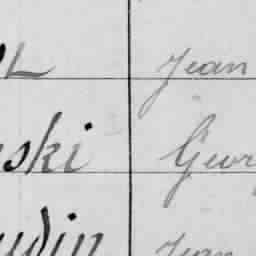 L Jean
ski Geor
udin Jean